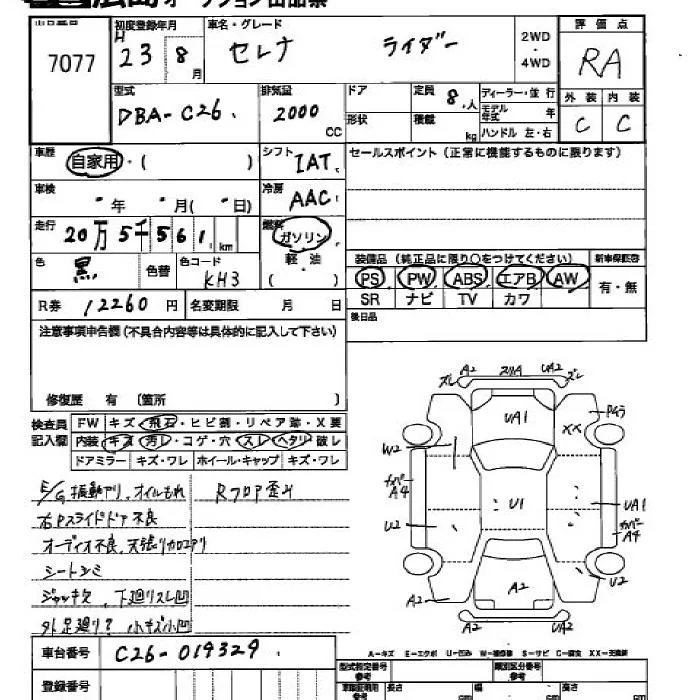 広島 オークション出品票
出品番号 初度登録年月 車名・グレード 2WD・4WD 評価点
7077 H 23 8月 セレナ ライダー RA
型式 排気量 ドア 定員 8人 ディーラー・並行 外装 内装
DBA-C26 2000 CC 形状 積載 kg モデル年式 年 C C
ハンドル 左・右
車歴 自家用・( ) シフト IAT セールスポイント(正常に機能するものに限ります)
車検 年 月( 日) 冷房 AAC
走行 20万5千561 km 燃料 ガソリン
軽・油
( )
色 黒 色替 色コード KH3
装備品(純正品に限り○をつけてください) 新車保証書
PS PW ABS エアB AW 有・無
SR ナビ TV カワ
R券 12260円 名変期限 月 日 後日品
注意事項申告欄(不具合内容等は具体的に記入して下さい)
修復歴 有 〔箇所 〕
検査員記入欄 FW キズ・飛石・ヒビ割・リペア跡・X要
内装 キズ・汚レ・コゲ・穴・スレ・ヘタリ・破レ
ドアミラー キズ・ワレ ホイール・キャップ キズ・ワレ
E/G振動アリ、オイルもれ Rフロア歪み
右Pスライドドア不良
オーディオ不良、天張りカロコアリ
シートシミ
ジャッキ欠、下廻りスレ凹
外足廻り? 小キズ小凹
A2 スリA UA2
ズレ ズレ
UA1 XX
W2
カバー A4
U1 UA1
カバー A4
U2 U2
A2 A2 A2
車台番号 C26-019329
A-キズ E-エクボ U-凹み W-補修跡 S-サビ C-腐食 XX-交換済
登録番号
型式指定番号 参考 類別区分番号 参考
長さ cm 幅 cm 高さ cm